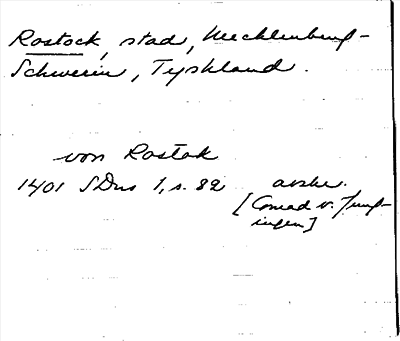 Rostock, stad, Mecklenburg-
Schwerin, Tyskland.
von Rostok
1401 SDns 1, s. 82 avskr.
[Conrad v. Jung-
ingen]